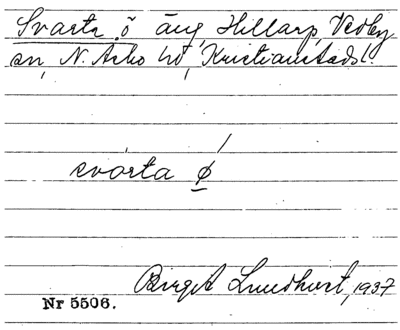 Svarta ö äng, Hillarp, Vedby
sn, N. Åsbo hd, Kristianstads l.
svarta ø
Birgit Lundkvist, 1937
Nr 5506.